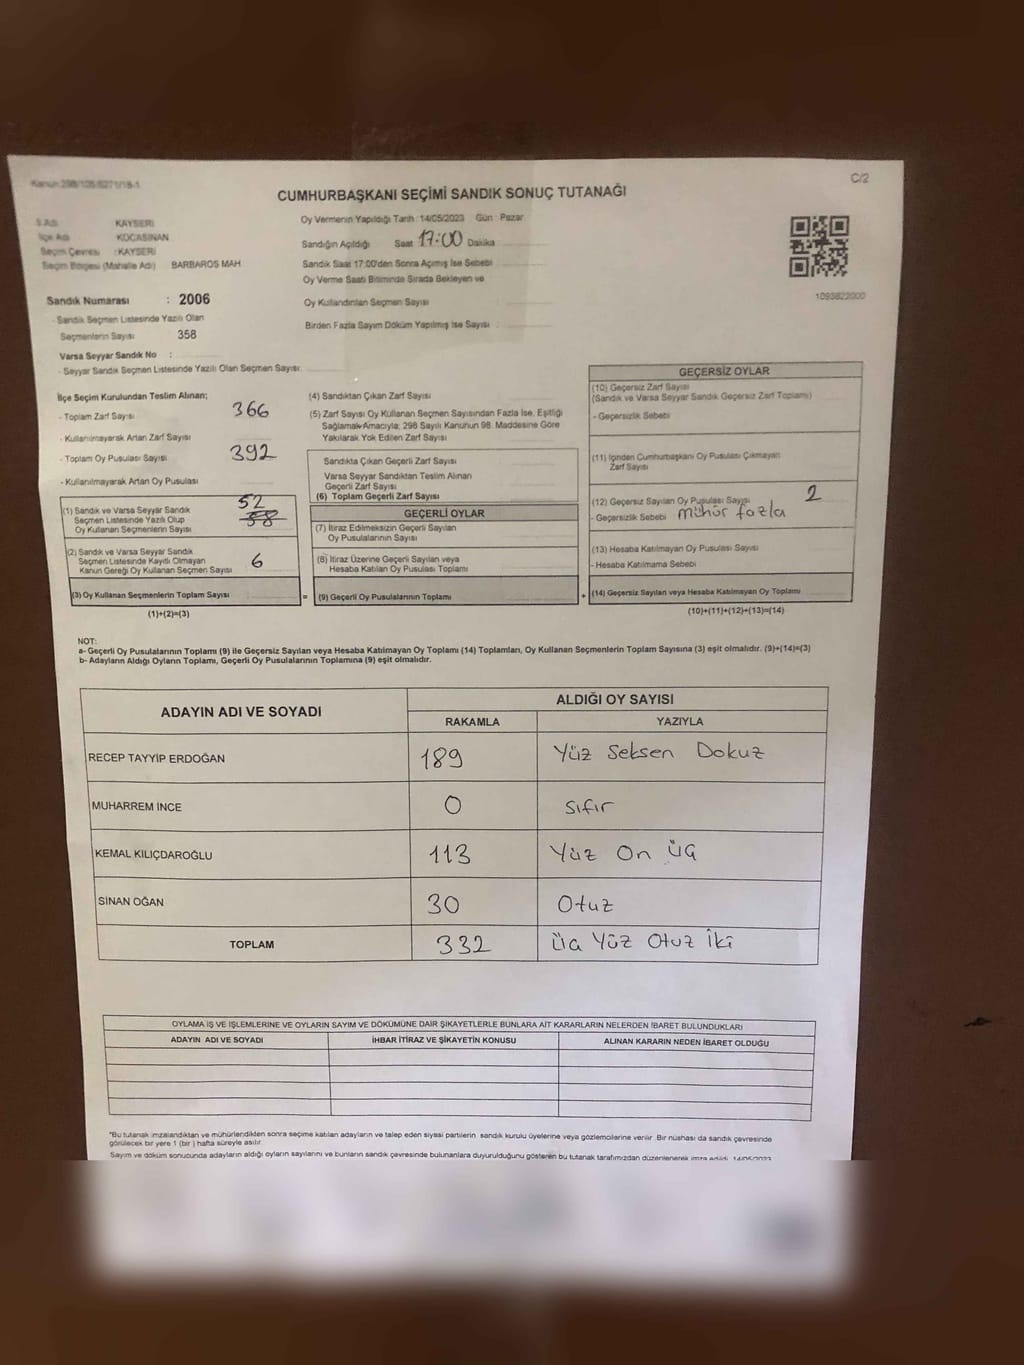 C/2
CUMHURBAŞKANI SEÇİMİ SANDIK SONUÇ TUTANAĞI
İlçe Adı KOCASİNAN
KAYSERİ
Seçim Çevresi : KAYSERİ
Seçim Bölgesi (Mahalle Adı) BARBAROS MAH
Sandık Numarası : 2006
- Sandık Seçmen Listesinde Yazılı Olan
Seçmenlerin Sayısı 358
Varsa Seyyar Sandık No :
- Seyyar Sandık Seçmen Listesinde Yazılı Olan Seçmen Sayısı
Oy Vermenin Yapıldığı Tarih : 14/05/2023 Gün : Pazar
Sandığın Açıldığı Saat 17:00 Dakika
Sandık Saat 17:00'den Sonra Açımış İse Sebebi
Oy Verme Saati Bitiminde Sırada Bekleyen ve
Oy Kullandırılan Seçmen Sayısı :
Birden Fazla Sayım Döküm Yapılmış İse Sayısı :
1093822000
İlçe Seçim Kurulundan Teslim Alınan;
- Toplam Zarf Sayısı 366
- Kullanılmayarak Artan Zarf Sayısı
- Toplam Oy Pusulası Sayısı 392
- Kullanılmayarak Artan Oy Pusulası
52
(1) Sandık ve Varsa Seyyar Sandık
Seçmen Listesinde Yazılı Olup
Oy Kullanan Seçmenlerin Sayısı
(2) Sandık ve Varsa Seyyar Sandık
Seçmen Listesinde Kayıtlı Olmayan
Kanun Gereği Oy Kullanan Seçmen Sayısı 6
(3) Oy Kullanan Seçmenlerin Toplam Sayısı
(1)+(2)=(3)
(4) Sandıktan Çıkan Zarf Sayısı
(5) Zarf Sayısı Oy Kullanan Seçmen Sayısından Fazla İse, Eşitliği
Sağlamak Amacıyla; 298 Sayılı Kanunun 98. Maddesine Göre
Yakılarak Yok Edilen Zarf Sayısı
Sandıkta Çıkan Geçerli Zarf Sayısı
Varsa Seyyar Sandıktan Teslim Alınan
Geçerli Zarf Sayısı
(6) Toplam Geçerli Zarf Sayısı
GEÇERLİ OYLAR
(7) İtiraz Edilmeksizin Geçerli Sayılan
Oy Pusulalarının Sayısı
(8) İtiraz Üzerine Geçerli Sayılan veya
Hesaba Katılan Oy Pusulası Toplamı
= (9) Geçerli Oy Pusulalarının Toplamı
GEÇERSİZ OYLAR
(10) Geçersiz Zarf Sayısı
(Sandık ve Varsa Seyyar Sandık Geçersiz Zarf Toplamı)
- Geçersizlik Sebebi
(11) İçinden Cumhurbaşkanı Oy Pusulası Çıkmayan
Zarf Sayısı
(12) Geçersiz Sayılan Oy Pusulası Sayısı 2
- Geçersizlik Sebebi mühür fazla
(13) Hesaba Katılmayan Oy Pusulası Sayısı
- Hesaba Katılmama Sebebi
+ (14) Geçersiz Sayılan veya Hesaba Katılmayan Oy Toplamı
(10)+(11)+(12)+(13)=(14)
NOT:
a- Geçerli Oy Pusulalarının Toplamı (9) ile Geçersiz Sayılan veya Hesaba Katılmayan Oy Toplamı (14) Toplamları, Oy Kullanan Seçmenlerin Toplam Sayısına (3) eşit olmalıdır. (9)+(14)=(3)
b- Adayların Aldığı Oyların Toplamı, Geçerli Oy Pusulalarının Toplamına (9) eşit olmalıdır.
ADAYIN ADI VE SOYADI ALDIĞI OY SAYISI
RAKAMLA YAZIYLA
RECEP TAYYİP ERDOĞAN 189 Yüz Seksen Dokuz
MUHARREM İNCE 0 Sıfır
KEMAL KILIÇDAROĞLU 113 Yüz On Üç
SİNAN OĞAN 30 Otuz
TOPLAM 332 Üç Yüz Otuz İki
OYLAMA İŞ VE İŞLEMLERİNE VE OYLARIN SAYIM VE DÖKÜMÜNE DAİR ŞİKAYETLERLE BUNLARA AİT KARARLARIN NELERDEN İBARET BULUNDUKLARI
ADAYIN ADI VE SOYADI İHBAR İTİRAZ VE ŞİKAYETİN KONUSU ALINAN KARARIN NEDEN İBARET OLDUĞU
*Bu tutanak imzalandıktan ve mühürlendikten sonra seçime katılan adayların ve talep eden siyasi partilerin sandık kurulu üyelerine veya gözlemcilerine verilir. Bir nüshası da sandık çevresinde
görülecek bir yere 1 (bir) hafta süreyle asılır.
Sayım ve döküm sonucunda adayların aldığı oyların sayılarını ve bunların sandık çevresinde bulunanlara duyurulduğunu gösteren bu tutanak tarafımızdan düzenlenerek imza edildi. 14/05/2023